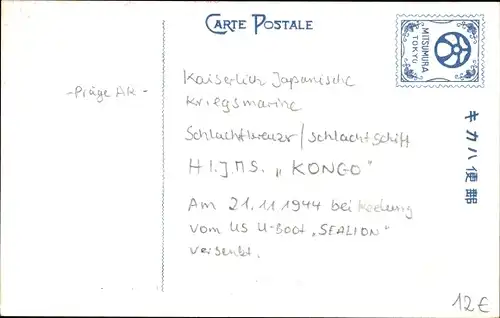 CARTE POSTALE
MITSUMURA
TOKYO
キカハ便郵
-Präge AK-
Kaiserlich Japanische
Kriegsmarine
Schlachtkreuzer/Schlachtschiff
H.I.J.M.S. „KONGO"
Am 21.11.1944 bei Keelung
vom US U-Boot „SEALION"
versenkt.
12€